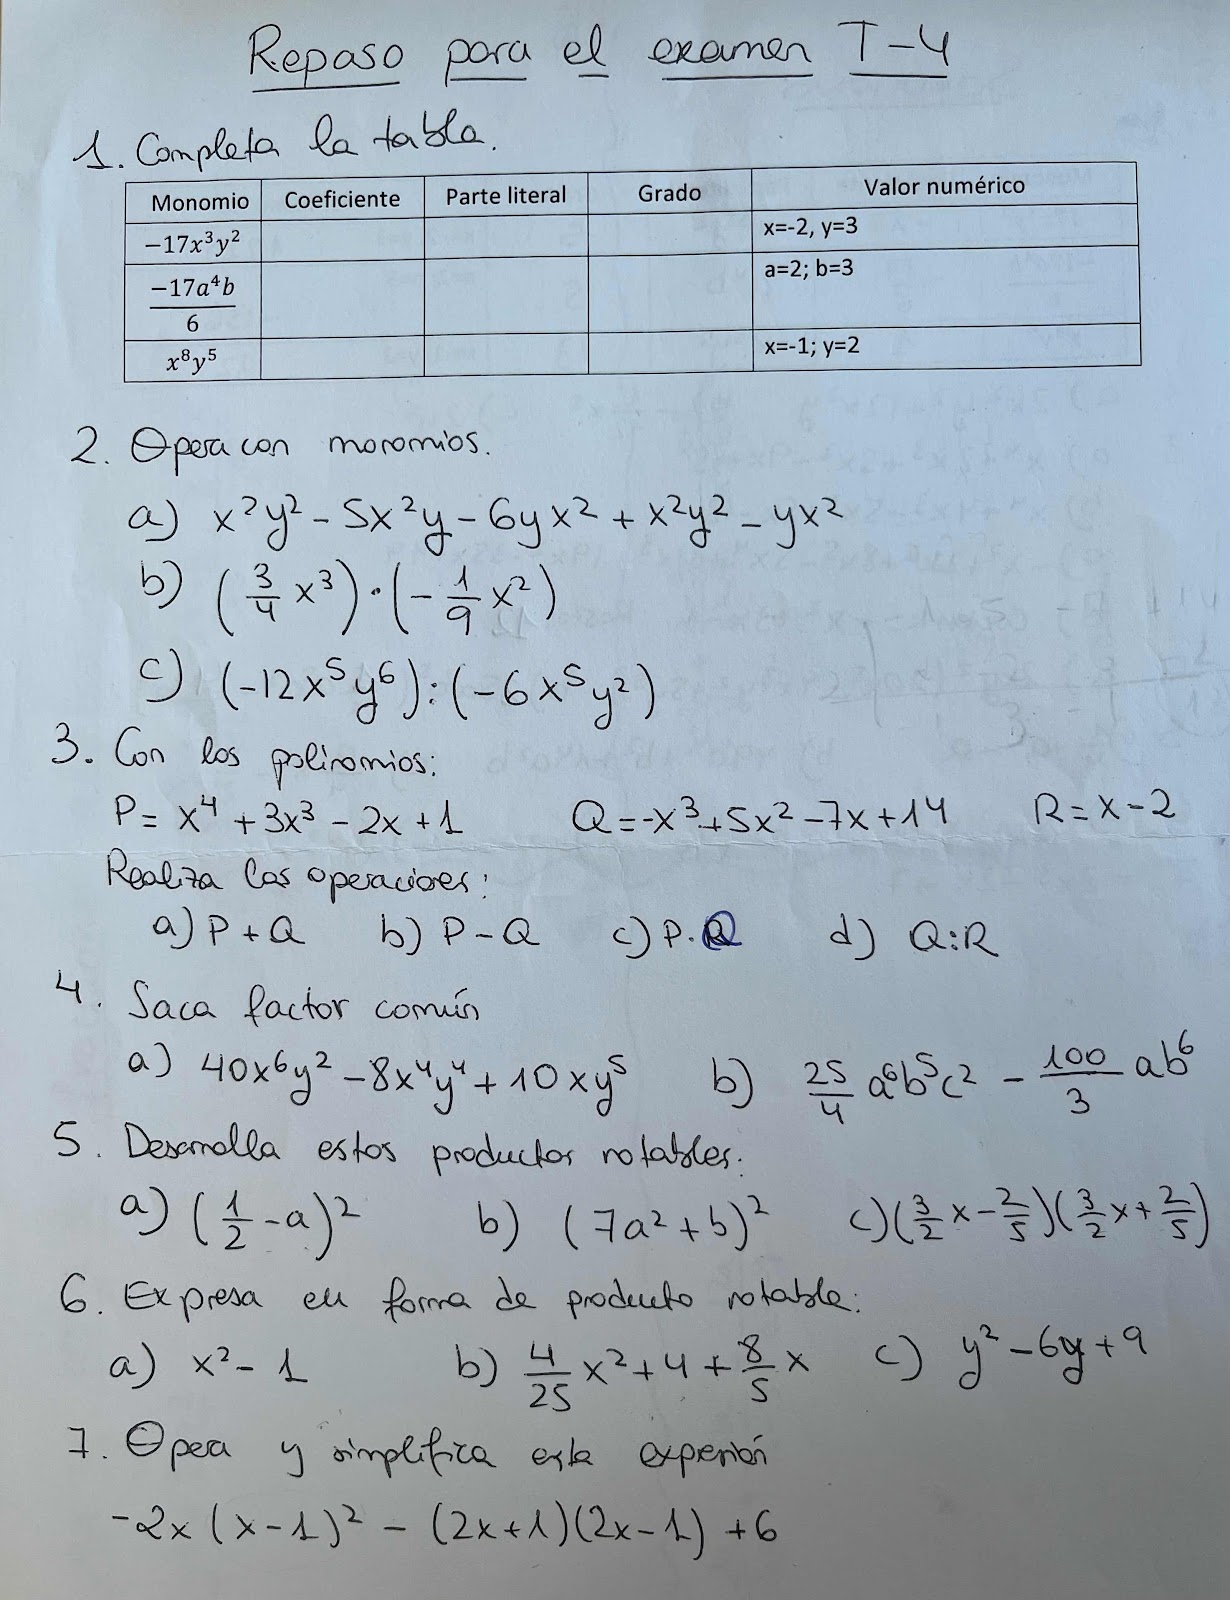 Repaso para el examen T-4
1. Completa la tabla.
Monomio Coeficiente Parte literal Grado Valor numérico
−17x³y² x=-2, y=3
−17a⁴b/6 a=2; b=3
x⁸y⁵ x=-1; y=2
2. Opera con monomios.
a) x²y² - 5x²y - 6yx² + x²y² - yx²
b) (3/4 x³)·(-1/9 x²)
c) (-12x⁵y⁶):(-6x⁵y²)
3. Con los polinomios:
P= x⁴ + 3x³ - 2x + 1 Q=-x³+5x²-7x+14 R=x-2
Realiza las operaciones:
a) P+Q b) P-Q c) P·Q d) Q:R
4. Saca factor común
a) 40x⁶y² - 8x⁴y⁴ + 10xy⁵ b) 25/4 a⁶b⁵c² - 100/3 ab⁶
5. Desarrolla estos productos notables:
a) (1/2 - a)² b) (7a²+b)² c) (3/2 x - 2/5)(3/2 x + 2/5)
6. Expresa en forma de producto notable:
a) x² - 1 b) 4/25 x² + 4 + 8/5 x c) y² - 6y + 9
7. Opera y simplifica esta expresión
-2x(x-1)² - (2x+1)(2x-1) + 6